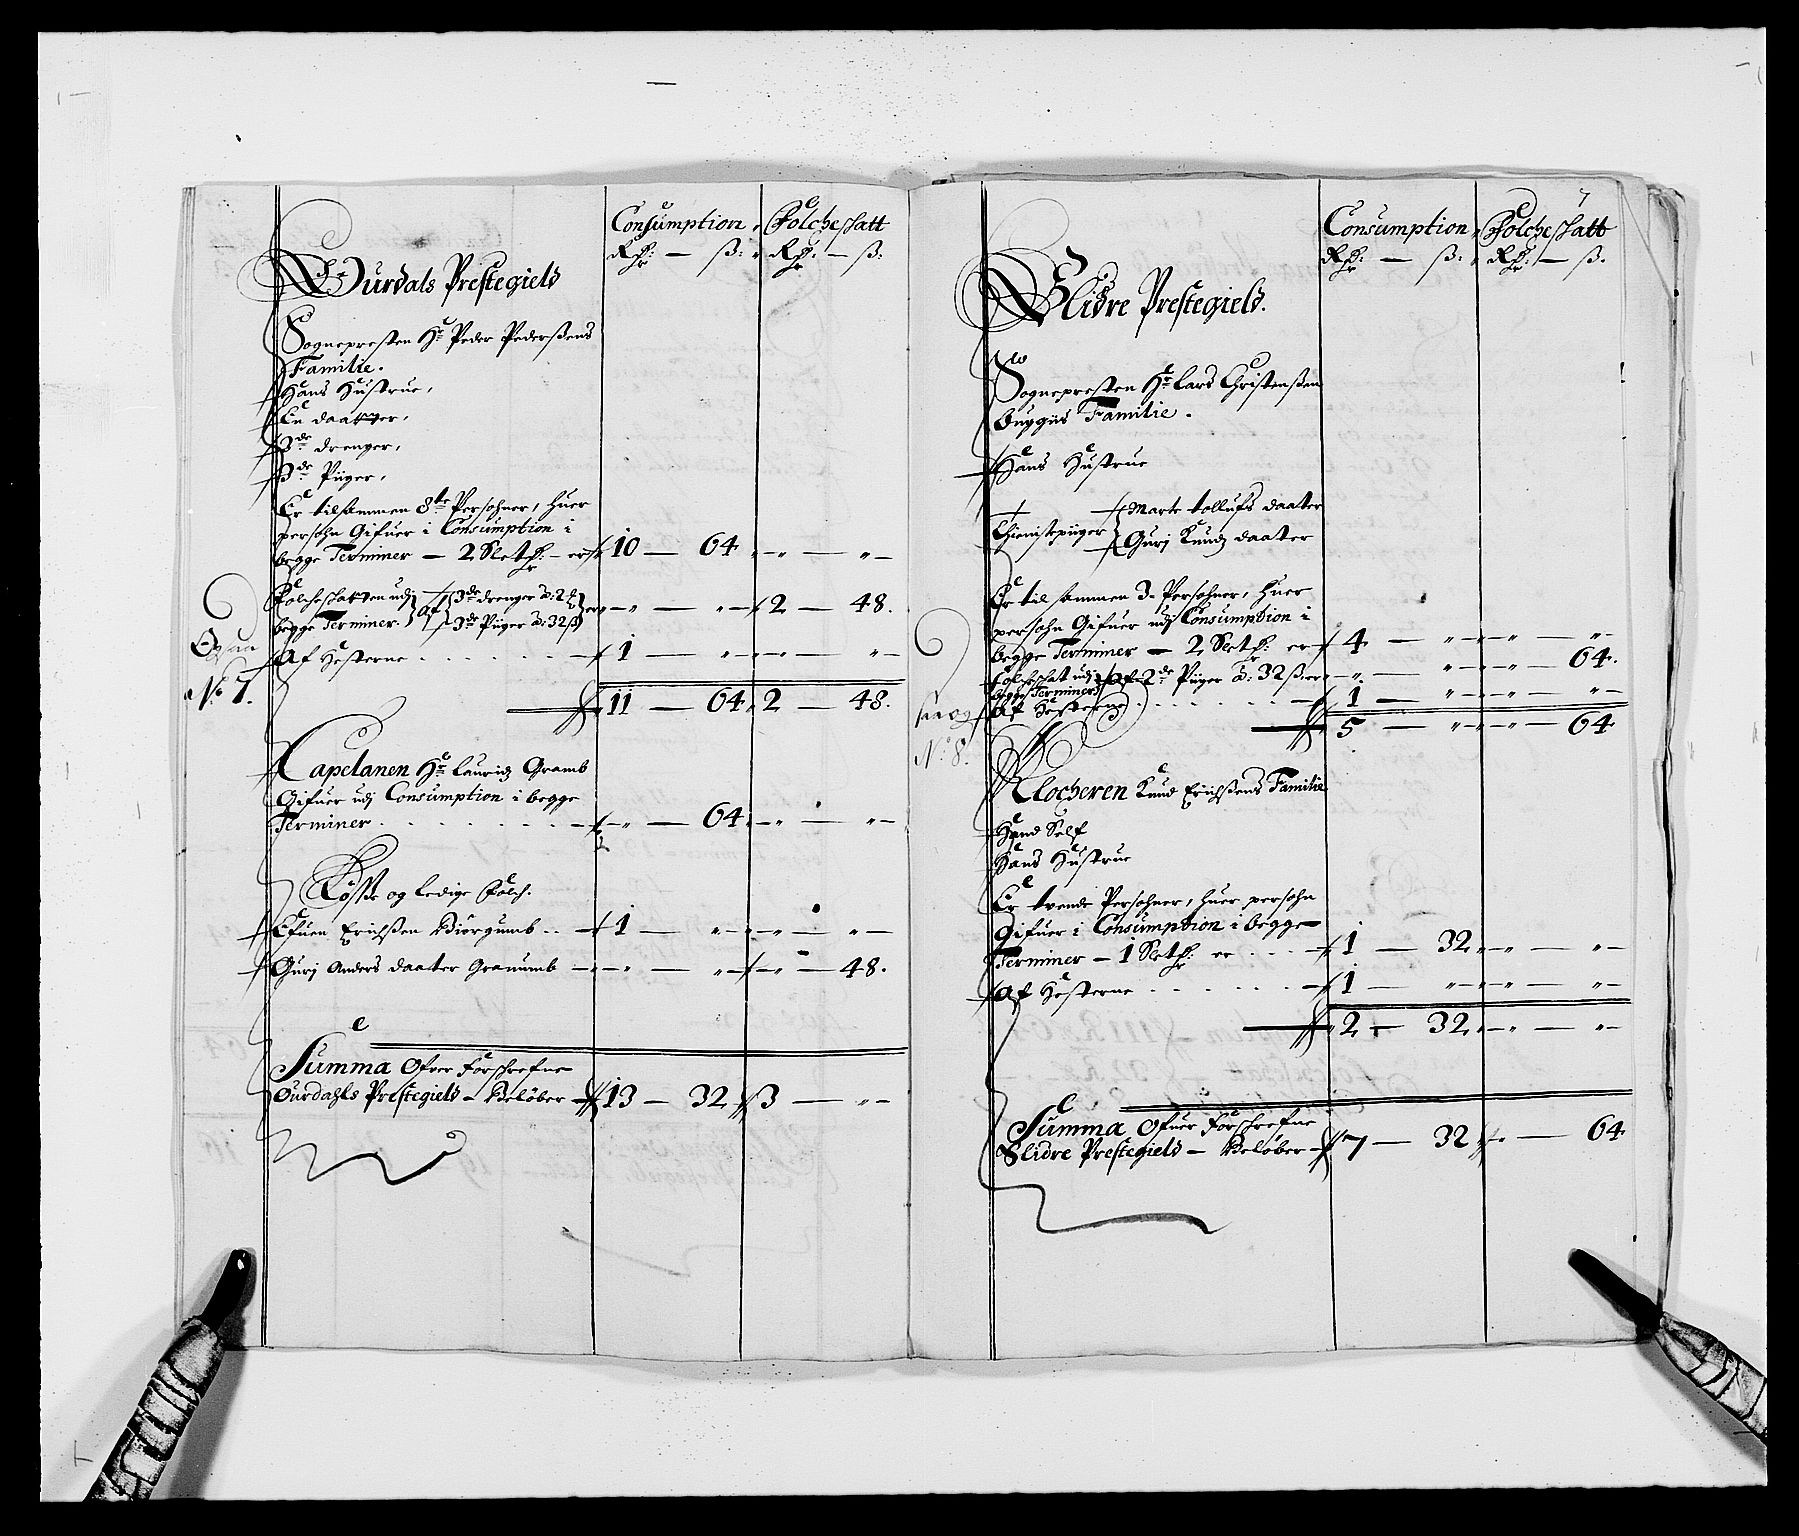 Consumption Folcheskatt
Rdr: — ß: Rdr: — ß:
Ourdals Prestegield
Sognepresten Hr Peder Pederßens
Familie.
Hans Hustrue,
En daatter,
3de drenger,
3de Piiger,
Er tilsammen 8te Persohner, huer
persohn Gifuer i Consumption i
begge Terminer — 2 Sletdr: — er 10 — 64 — " — " —
Folcheskatten udj
begge Terminer. af 3de drenger â: 2
3de Piiger â: 32 ß er — " — " — 2 — 48.
Af Hesterne . . . . . . 1 — " — " — " —
No 7.
11 — 64 2 — 48.
Capelanen Hr Lauridz Gramb
Gifuer udj Consumption i begge
Terminer . . . . . . — " — 64 — " — " —
Løsse og Ledige Folch.
Efuen Erichßen Biørgumb . . 1 — " — " — " —
Gurj Anders daater Granumb — " — " — " — 48.
Summa Ofver Forschrefne
Ourdahls Prestegield — Beløber — 13 — 32 3 — " —
7
Consumption Folcheskatt
Rdr: — ß: Rdr: — ß.
Slidre Prestegield.
Sognepresten Hr Lars Christenßen
Familie.
Hans Hustrue
Thienistepiiger Marte tollufs daater
Gurj Knudz daater
Er tilsammen 3de Persohner, huer
persohn Gifuer udj Consumption i
begge Terminer — 2 Sletdr: er 4 — " — " — " —
Folcheskat udj
begge Terminer af 2de Piiger â: 32 ß. er — " — " — " — 64.
Af Hesterne . . . . . . 1 — " — " — " —
No 8.
5 — " — " — 64
Klocheren Knud Erichßens Familie
Hand Self
Hans Hustrue
Er tvende Persohner, huer persohn
Gifuer i Consumption i begge
Terminer — 1 Sletdr: er . . . 1 — 32 — " — " —
Af Hesterne . . . . . . 1 — " — " — " —
2 — 32 — " — " —
Summa Ofuer Forschrefne
Slidre Prestegield — Beløber — 7 — 32 " — 64